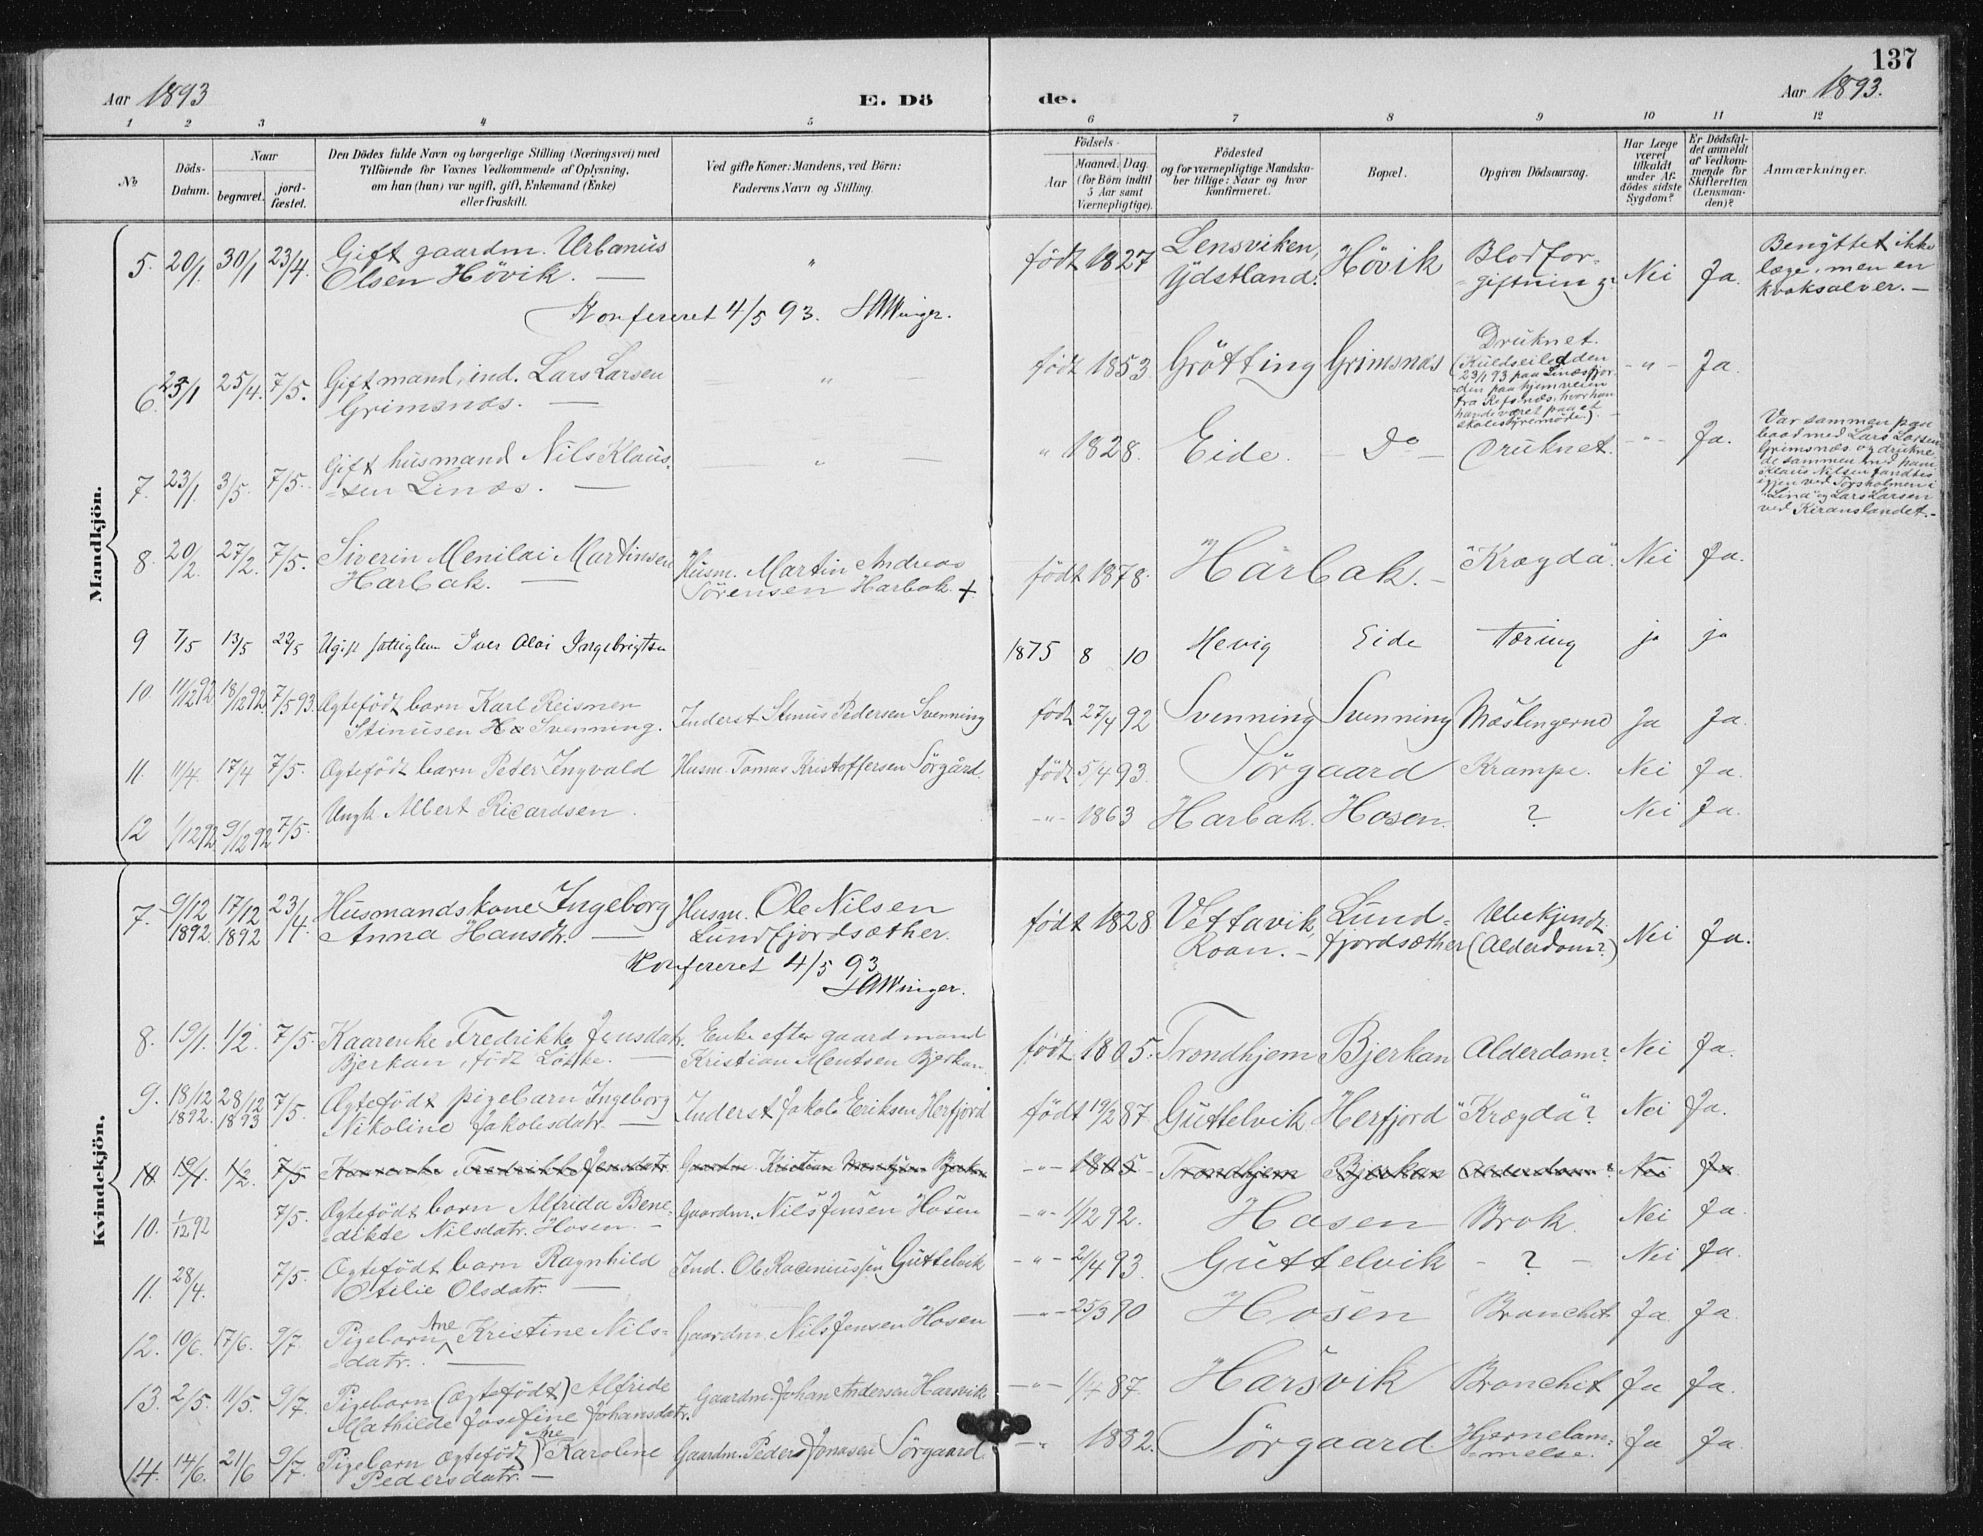 137
Aar 1893
E. Dö
de.
Aar 1893.
1 2 3 4 5 6 7 8 9 10 11 12
No
Döds-
Datum.
Naar
begravet.
jord-
fæstet.
Den Dödes fulde Navn og borgerlige Stilling (Næringsvei) med
Tilföiende for Voxnes Vedkommende af Oplysning,
om han (hun) var ugift, gift, Enkemand (Enke)
eller fraskilt.
Ved gifte Koner: Mandens, ved Börn:
Faderens Navn og Stilling.
Födsels-
Aar
Maaned. Dag.
(for Börn indtil
5 Aar samt
Værnepligtige).
Födested
og for værnepligtige Mandska-
ber tillige: Naar og hvor
konfirmeret.
Bopæl.
Opgiven Dödsaarsag.
Har Læge
været
tilkaldt
under Af-
dödes sidste
Sygdom?
Er Dödsfal-
det anmeldt
af Vedkom-
mende for
Skifteretten
(Lensman-
den)?
Anmærkninger.
Mandkjön.
5. 20/1. 30/1 23/4. Gift gaardm. Urbanus
Olsen Hövik. — " födt 1827 Lensviken,
Ydstland. Hövik Blodfor-
giftning. Nei Ja. Benyttet ikke
læge, men en
kvaksalver. —
Konfereret 4/5 93. SAWinger.
6. 23/1 25/4. 7/5. Gift mand, ind. Lars Larsen
Grimsnæs. — — " — födt 1853. Grötting Grimsnæs Druknet.
(Kuldseiledden
23/1 93 paa Linæsfjor-
den paa hjemveien
fra Refsnæs, hvor han
havde været paa et
skolestyremöde). - " - Ja
7. 23/1. 3/5. 7/5. Gift husmand Nils Klaus-
sen Linæs. — — " — " 1828. Eide. — Do — Druknet. - " - Ja. Var sammen paa
baad med Lars Larsen
Grimsnæs og drukne-
de sammen med ham
Klaus Nilsen fandtes
igjen ved Torsholmen i
"Lina" og Lars Larsen
ved Kiranslandet. -
8. 20/2. 27/2. 7/5. Siverin Menilai Martinsen
Harbak. — Husm. Martin Andreas
Sörensen Harbak. + födt 1878. Harbak. - "Krægda". Nei Ja.
9 7/5 13/5 22/5 Ugift fattiglem Iver Olai Ingebrigtsn 1875 8 10 Hevig Eide Tæring ja ja
10. 11/12 92 18/12 92. 7/5 93. Ægtefödt barn Karl Reismer
Stinusen Svenning. Inderst Stinus Pedersen Svenning födt 27/4 92 Svenning Svenning Mæslingerne Ja Ja.
11. 11/4. 17/4 7/5. Ægtefödt barn Peter Ingvald Husm. Tomas Kristoffersen Sörgård. födt 5/4 93. Sörgaard Krampe. Nei Ja.
12 1/12 92. 9/12 92 7/5. Ungk. Albert Ricardsen. - " - 1863 Harbak. Hosen. ? Nei Ja.
Kvindekjön.
7. 9/12 1892. 17/12 1892 23/4. Husmandskone Ingeborg
Anna Hansdtr. — Husm. Ole Nilsen
Lundfjordsæther. födt 1828 Vettavik,
Roan. - Lund-
fjordsæther Ubekjendt.
(Alderdom?) Nei Ja.
Konfereret 4/5 93
SAWinger.
8. 19/1. 1/2. 7/5. Kaarenke Fredrikke Jensdatr.
Bjerkan, födt Lökke. — Enke efter gaardmand
Kristian Mentsen Bjerkan. födt 1805. Trondhjem Bjerkan Alderdom? Nei Ja.
9. 18/12 1892. 28/12 1893 7/5. Ægtefödt pigebarn Ingeborg
Nikoline Jakobsdatr. — Inderst Jakob Eriksen Herfjord födt 19/2 87 Guttelvik Herfjord "Krægda"? Nei Ja.
10 19/1. 1/2. 7/5 Kaarenke Fredrikke Jensdatr. Gaardm. Kristian Bjerkan - " - 1805 Trondhjem Bjerkan Alderdom? Nei Ja
10. 1/12 92 7/5. Ægtefödt barn Alfrida Bene-
dikte Nilsdatr. Hosen. - Gaardm. Nils Jensen Hosen - " - 1/12 92. Hosen Brok. Nei Ja.
11. 28/4. 7/5. Ægtefödt barn Ragnhild
Otilie Olsdatr. — Ind. Ole Guttelvik - " - 2/4 93. Guttelvik - ? - Nei Ja.
12. 10/6. 17/6. 9/7. Pigebarn Ane Kristine Nils-
datr. — Gaardm. Nils Jensen Hosen - " - 25/3 90 Hosen Bronchit Ja Ja.
13. 2/5. 11/5. 9/7. Pigebarn (Ægtefödt) Alfride
Mathilde Josefine Johansdatr. Gaardm. Johan Andersen Harsvik - " - 1/4 87. Harsvik Bronchit Ja Ja.
14. 14/6. 21/6 9/7. Pigebarn Ægtefödt) Ane Karoline
Pedersdatr. — Gaardm. Peders Jonasen Sörgaard. - " 1882. Sörgaard. Hjernelam-
melse. Ja Ja.